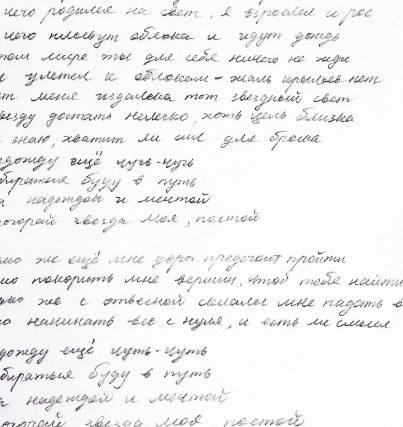 чего родился на свет, я взрослел и рос
чего плывут облака и идут дожди
том мире ты для себя ничего не жди
улетел к облакам - жаль крыльев нет
меня издалека тот звездный свет
звезду достать нелегко, хоть цель близка
знаю, хватит ли сил для броска
подожду ещё чуть-чуть
собираться буду в путь
надеждой и мечтой
догорай звезда моя, постой
же ещё мне дорог предстоит пройти
покорить мне вершин, чтоб тебя найти
же с отвесной скалы мне падать в
начинать всё с нуля, и есть ли смысл
подожду ещё чуть-чуть
собираться буду в путь
надеждой и мечтой
звезда моя, постой